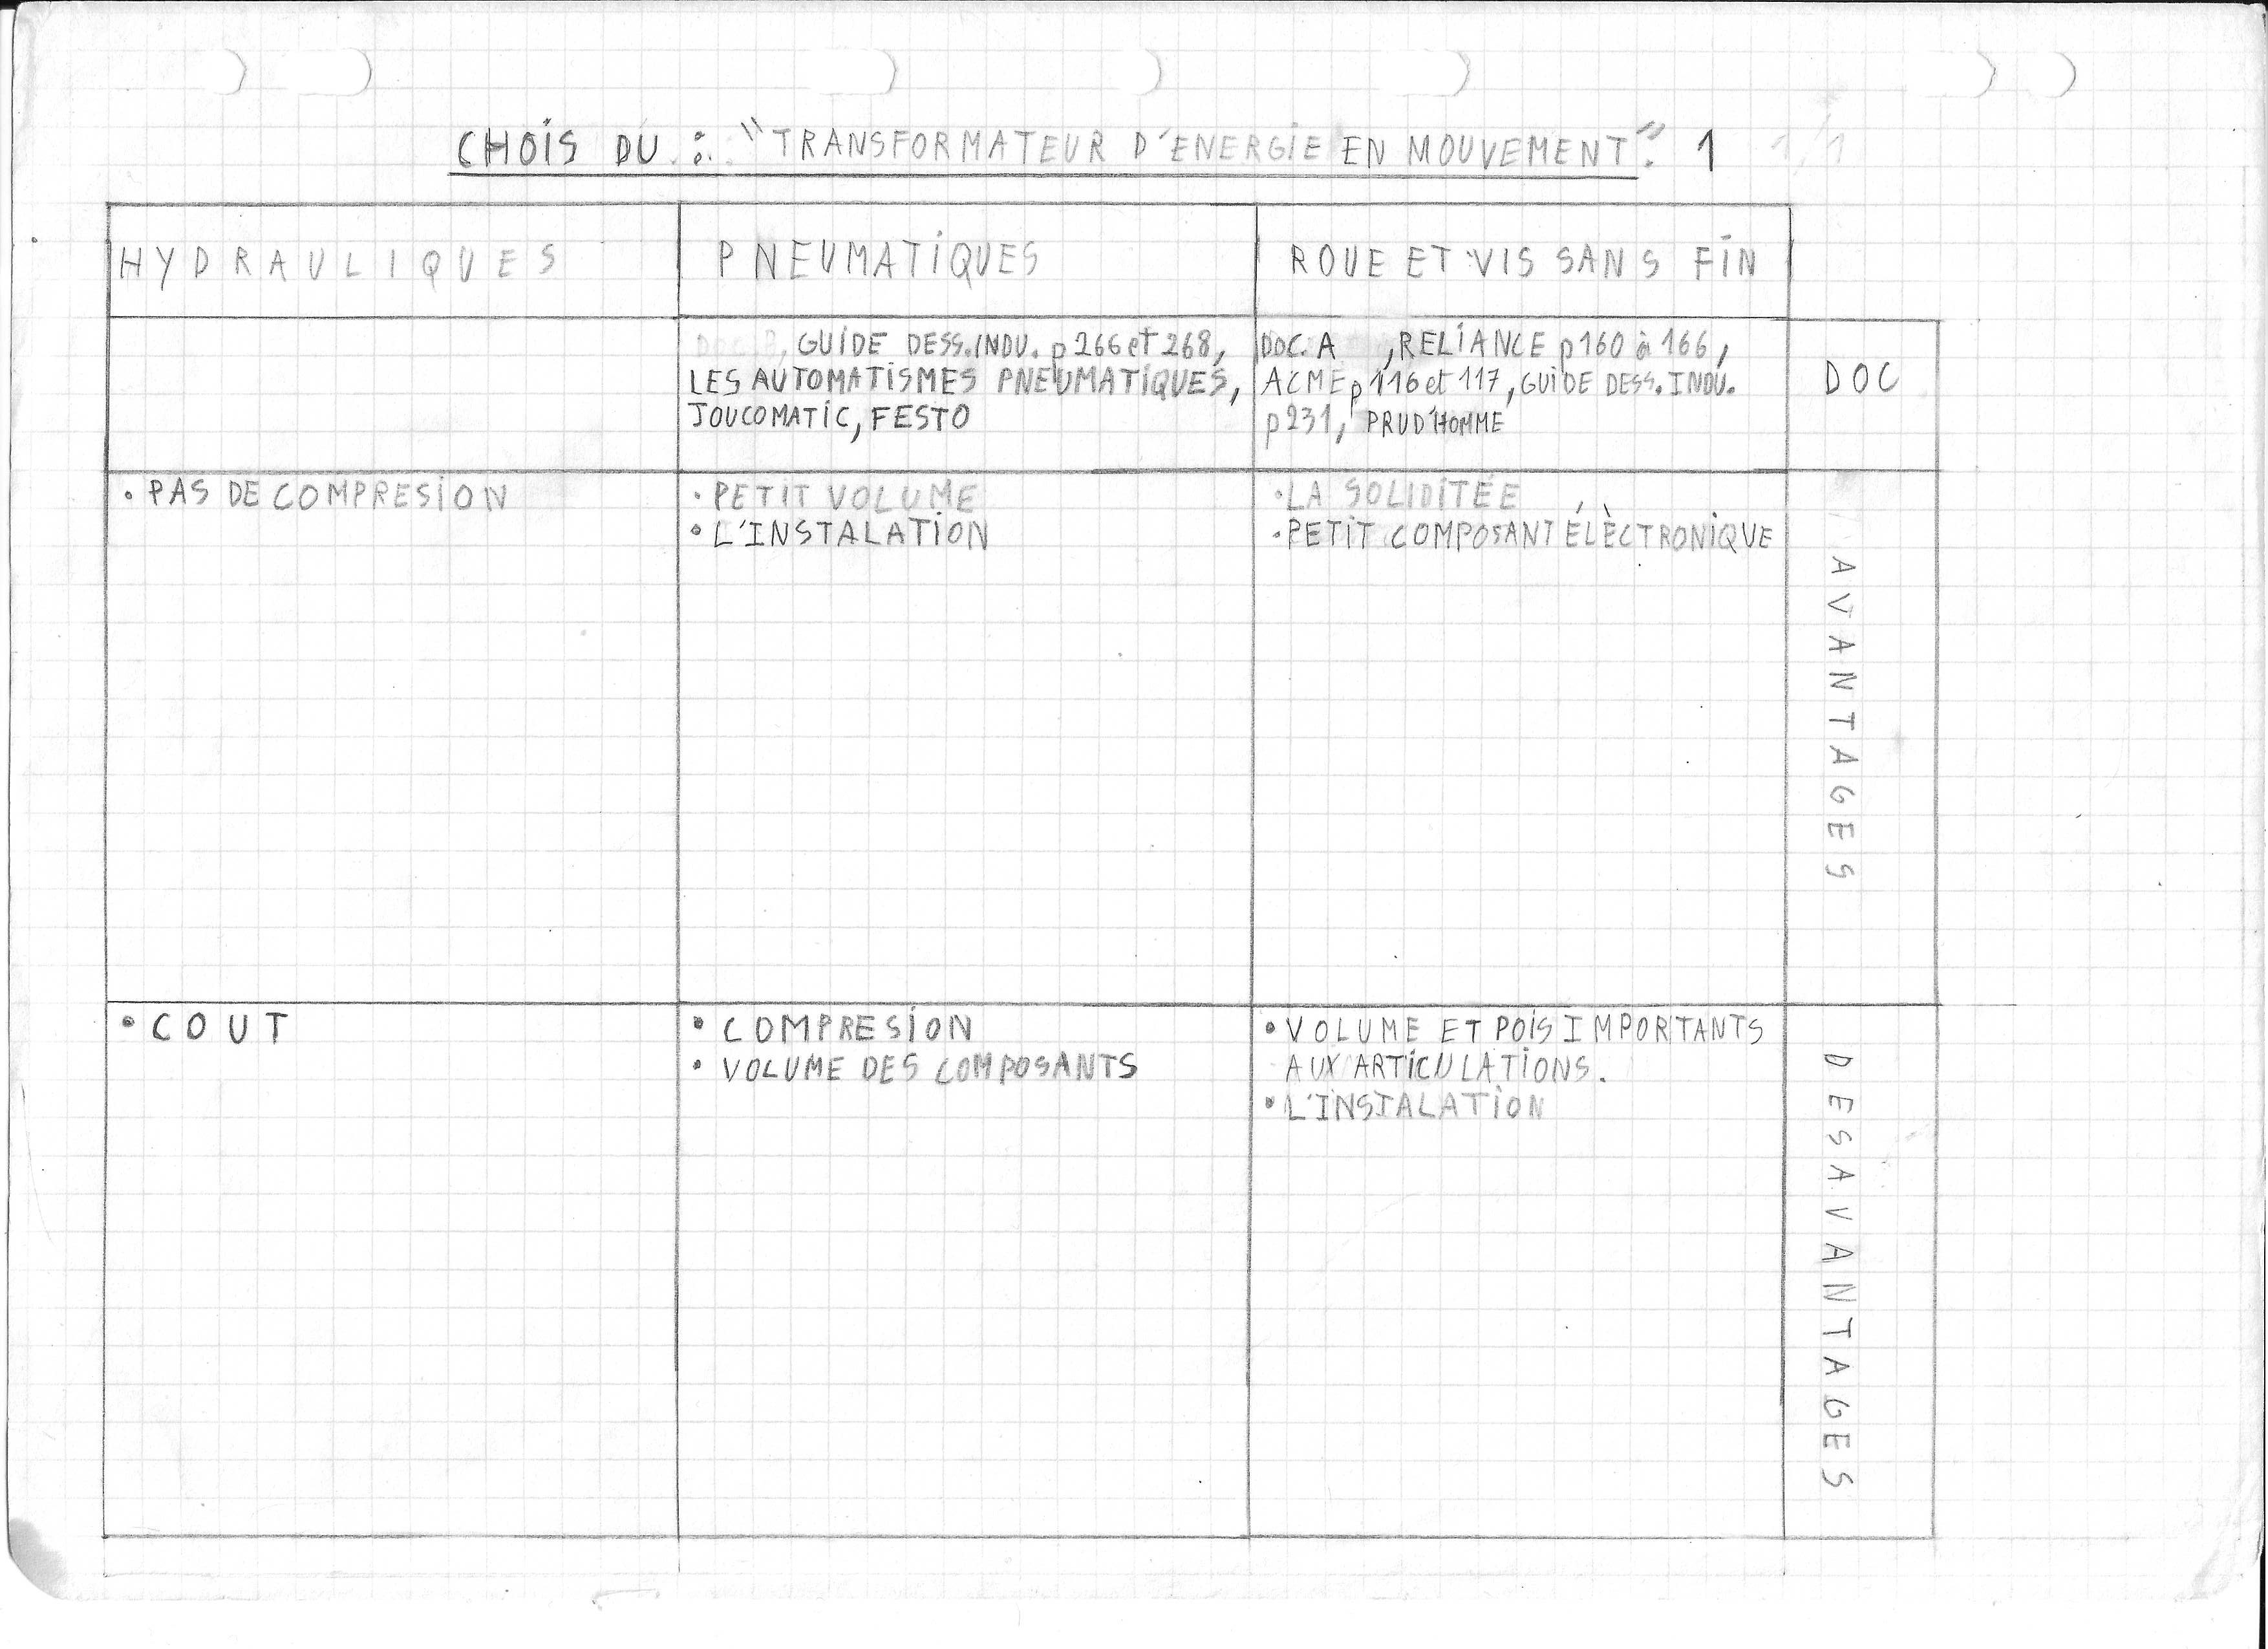 CHOIS DU : "TRANSFORMATEUR D'ENERGIE EN MOUVEMENT". 1
HYDRAULIQUES
PNEUMATIQUES
ROUE ET VIS SANS FIN
, GUIDE DESS.INDU. p266 et 268,
LES AUTOMATISMES PNEUMATIQUES,
JOUCOMATIC, FESTO
DOC. A , RELIANCE p160 à 166,
ACME p116 et 117, GUIDE DESS. INDU.
p231, PRUD'HOMME
DOC
• PAS DE COMPRESION
• PETIT VOLUME
• L'INSTALATION
• LA SOLIDITÉE
• PETIT COMPOSANT ÉLÈCTRONIQUE
AVANTAGES
• COUT
• COMPRESION
• VOLUME DES COMPOSANTS
• VOLUME ET POIS IMPORTANTS
AUX ARTICULATIONS.
• L'INSTALATION
DESAVANTAGES